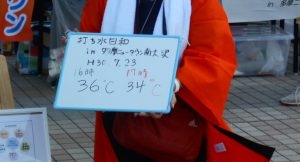 打ち水日和
in 多摩ニュータウン南大沢
H30.7.23
16時 17時
36℃ 34℃
in 多摩ニ